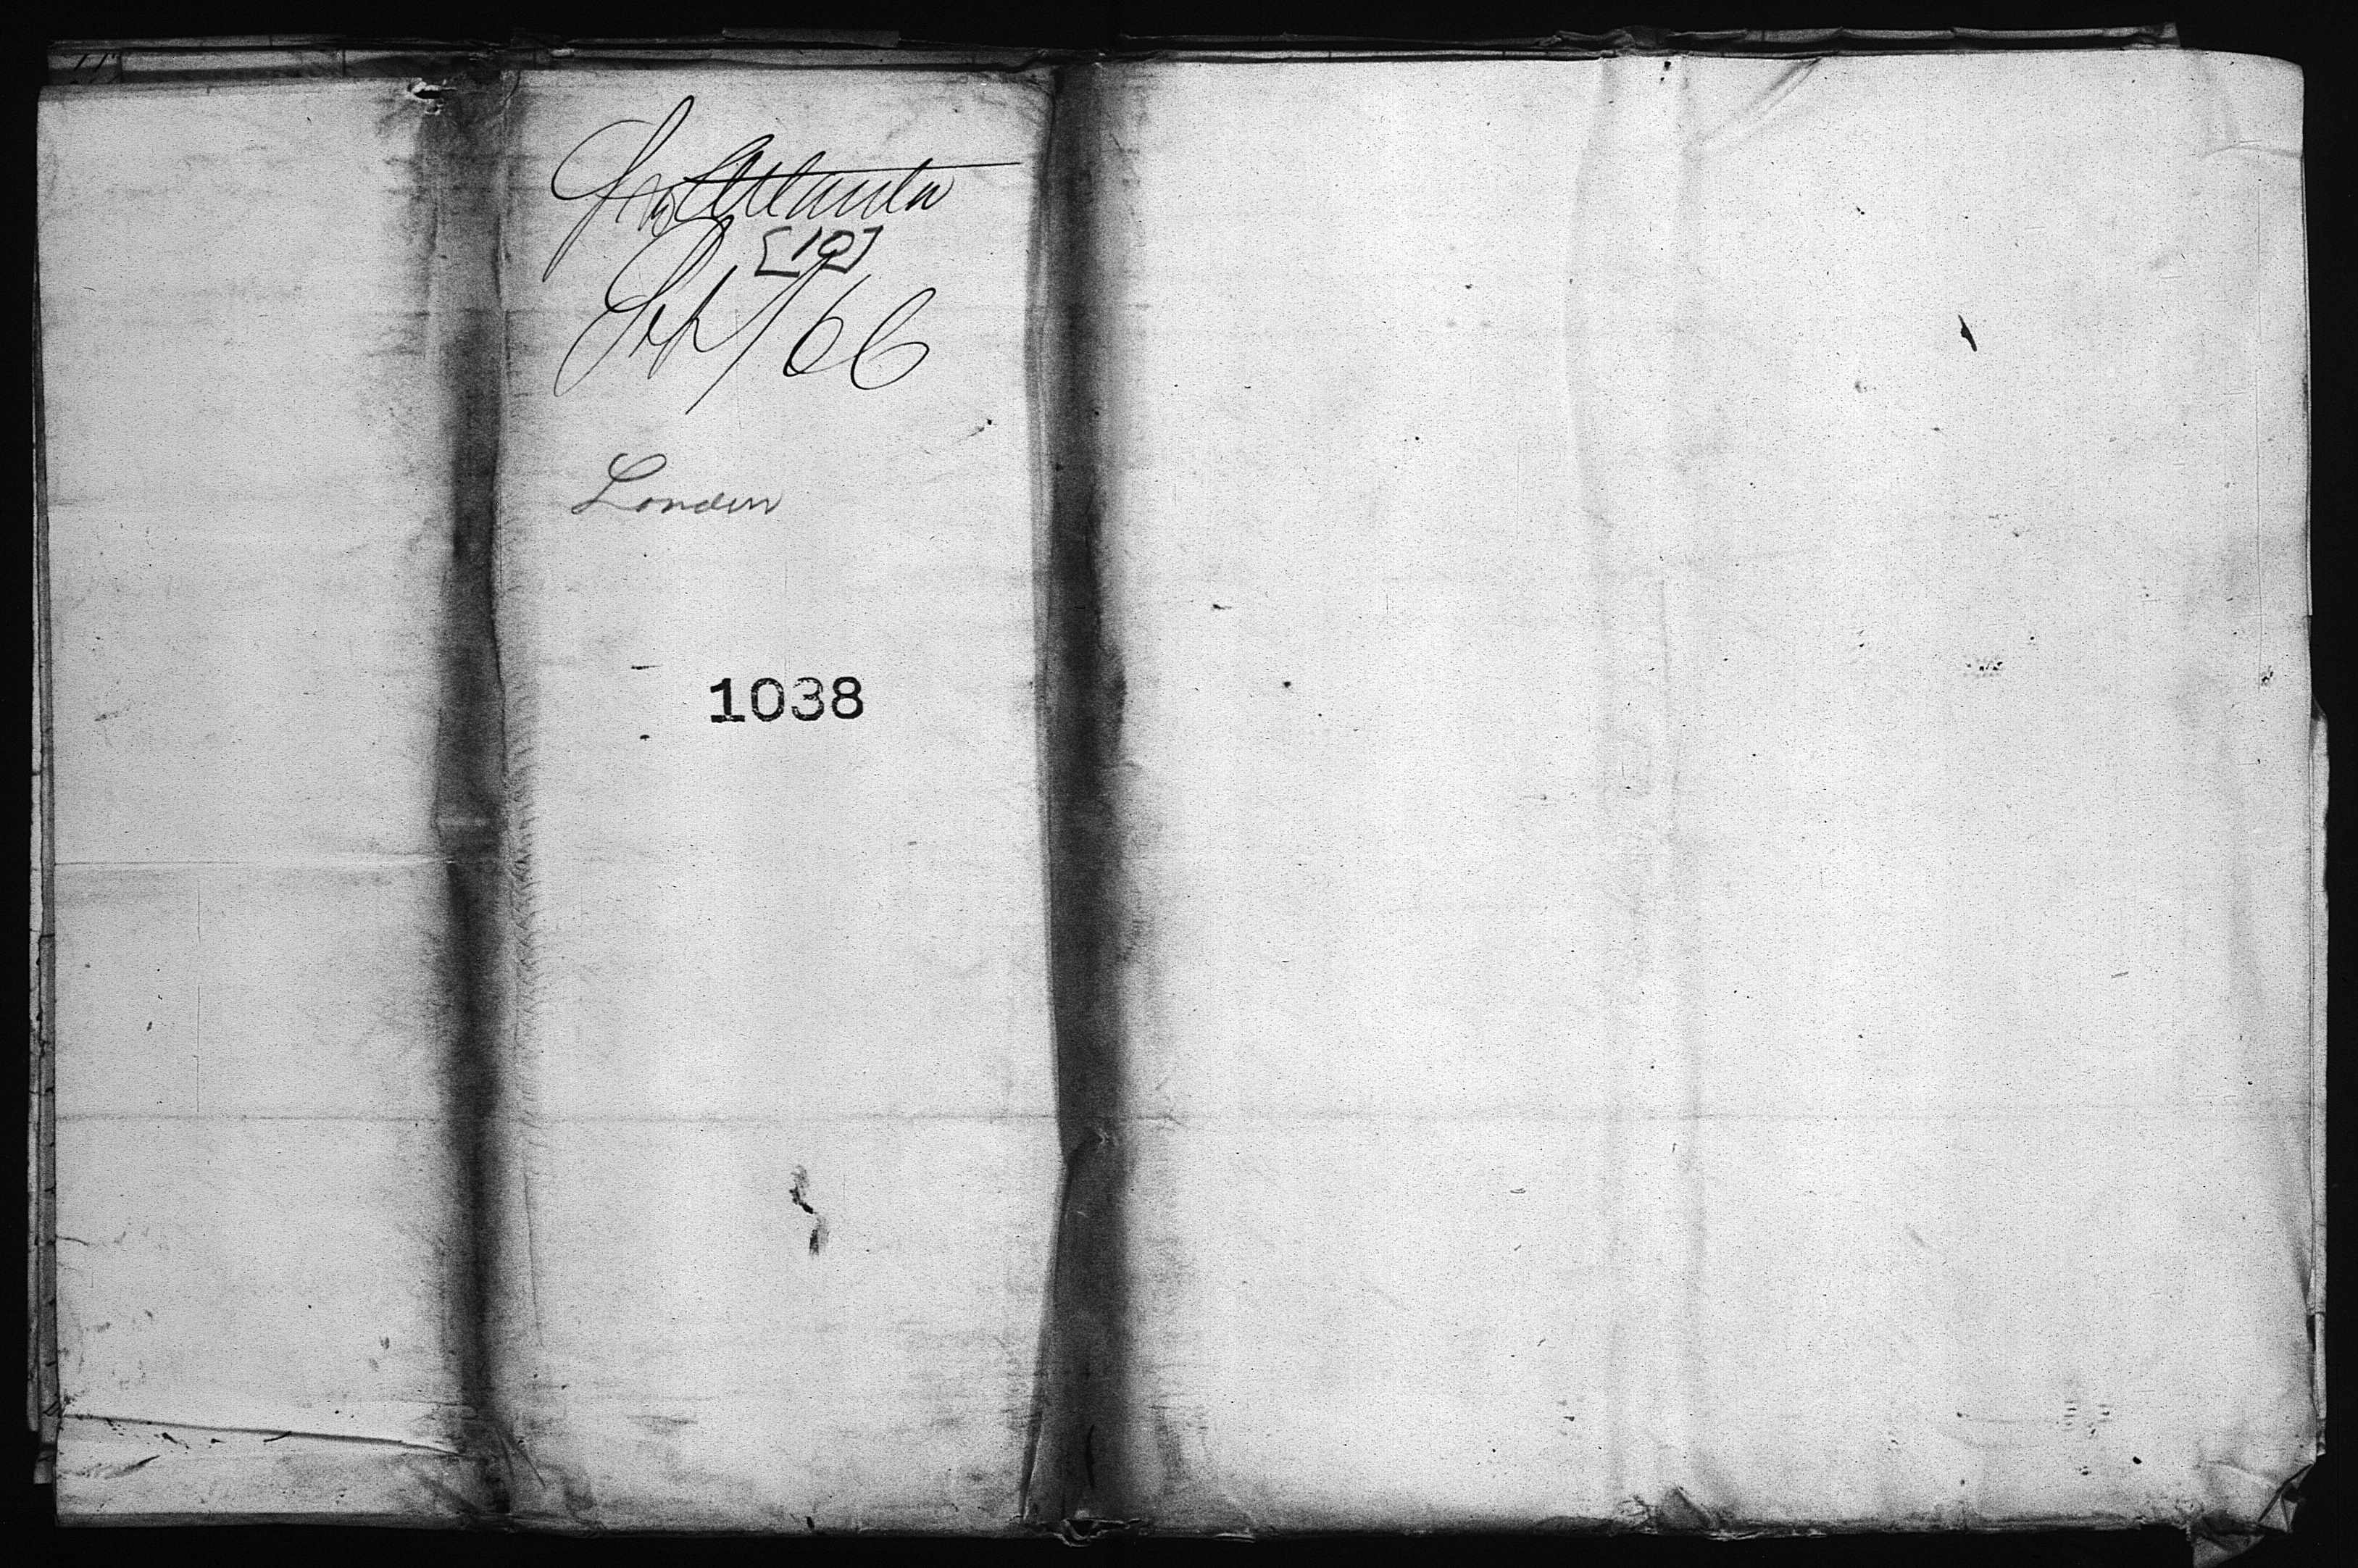 Str Atlanta
[10]
Sept/66
London
1038